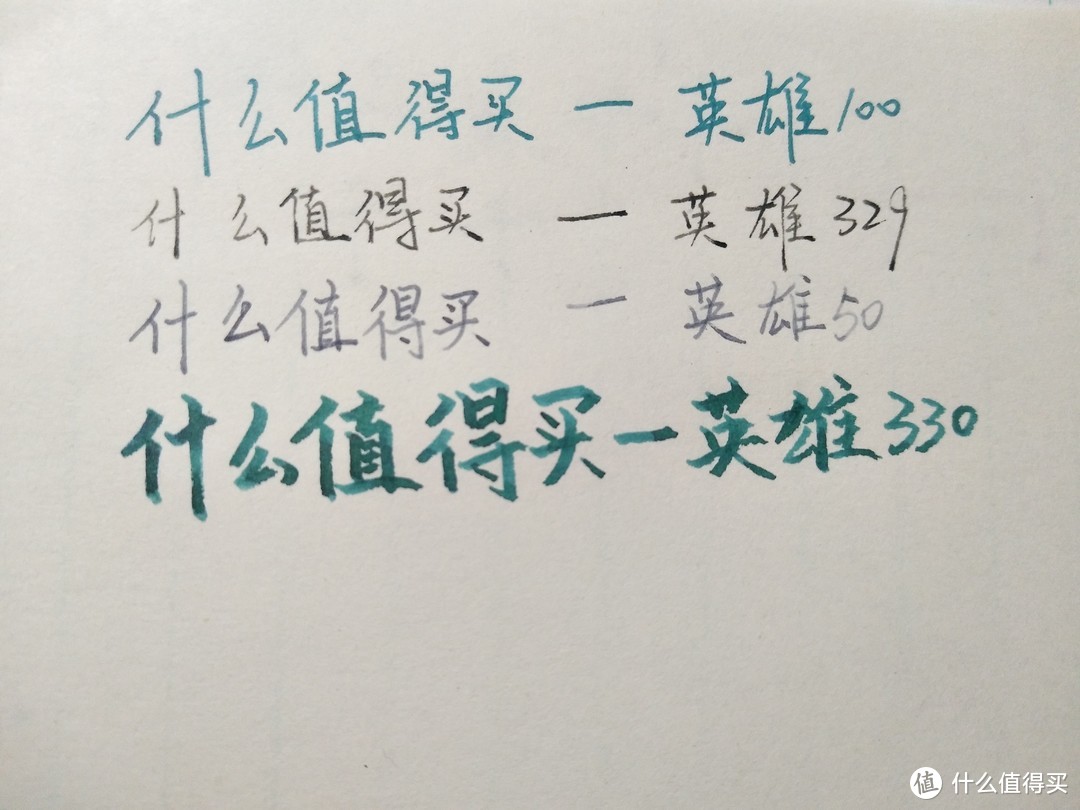 什么值得买一英雄100
什么值得买一英雄329
什么值得买一英雄50
什么值得买一英雄330
值 什么值得买